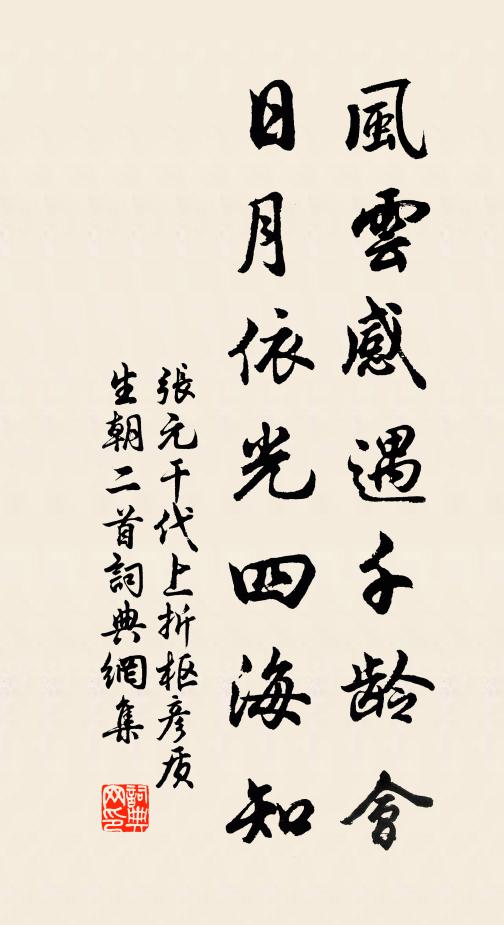 風雲感遇千龄會
日月依光四海知
張元干代上折枢彦质
生朝二首詞典網集
詞典网印